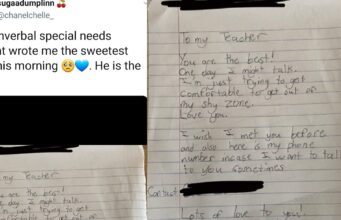 sugaadumplinn 🍒
@chanelchelle_
nverbal special needs
nt wrote me the sweetest
his morning 🥺💙. He is the
my Teacher
are the best!
day I might talk.
just trying to get
comfortable to get out of
To my Teacher
You are the best!
One day I might talk.
I'm just trying to get
comfortable to get out of
my shy zone.
Love you.
I wish I met you before
and also here is my phone
number incase I want to talk
to you sometimes
Contact
Lots of love to you!